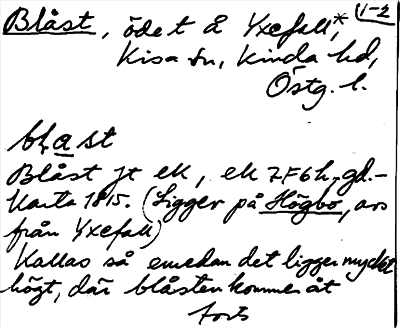 Blåst, öde t å Yxefall*, 1-2
Kisa sn, Kinda hd,
Östg. l.
blast
Blåst jt ek, ek 7F6h, gd.-
Karta 1815. (Ligger på Högbo, avs
från Yxefall)
Kallas så emedan det ligger mycket
högt, där blåsten kommer åt
forts